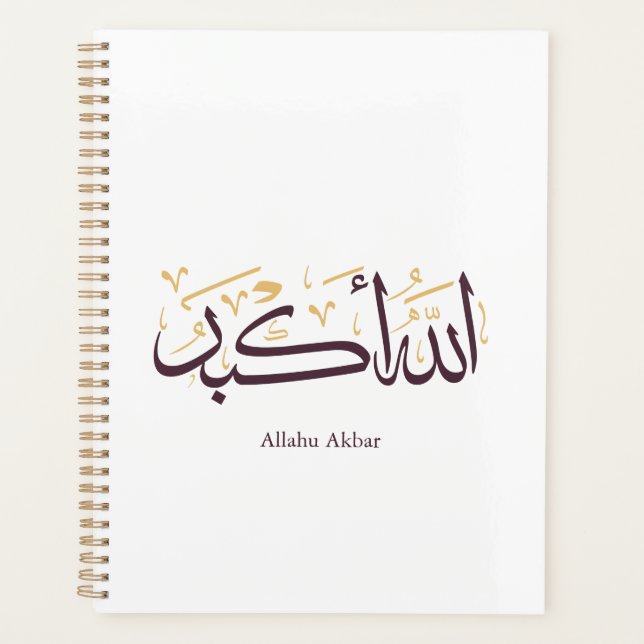 اللَّهُ أَكْبَرَ
Allahu Akbar